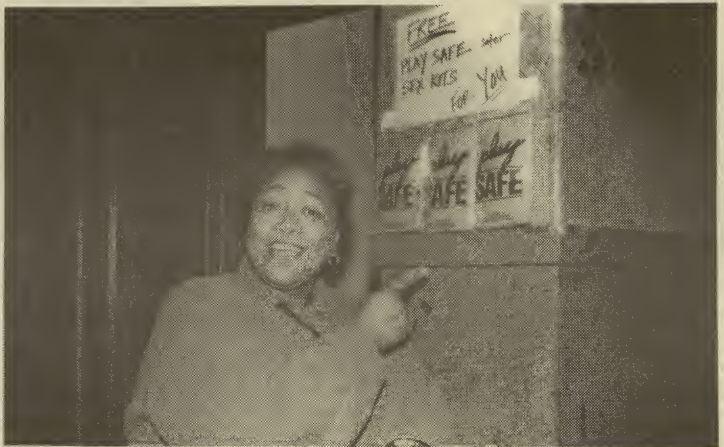 FREE
PLAY SAFE safer
SEX KITS
FOR You
play play play
SAFE SAFE SAFE